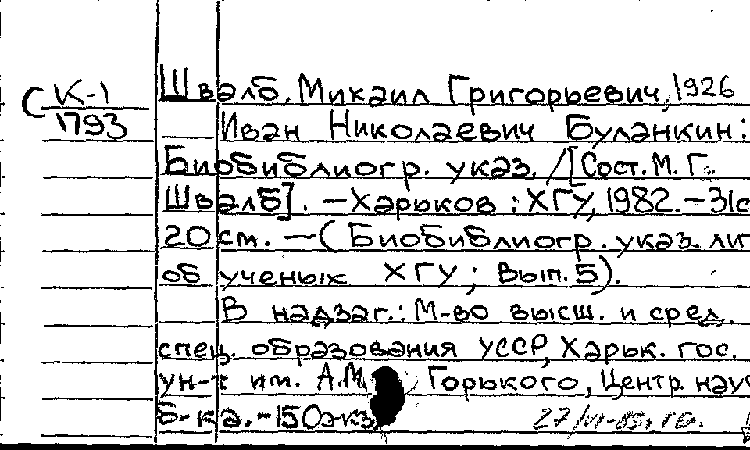 С К-1
1793
Швалб, Михаил Григорьевич, 1926
Иван Николаевич Буланкин:
Биобиблиогр. указ. /[Сост. М. Г.
Швалб]. – Харьков : ХГУ, 1982. – 31с
20 см. – ( Биобиблиогр. указ. лит
об ученых ХГУ ; Вып. 5).
В надзаг.: М-во высш. и сред.
спец. образования УССР, Харьк. гос.
ун-т им. А.М. Горького, Центр. науч
б-ка. – 150 экз.